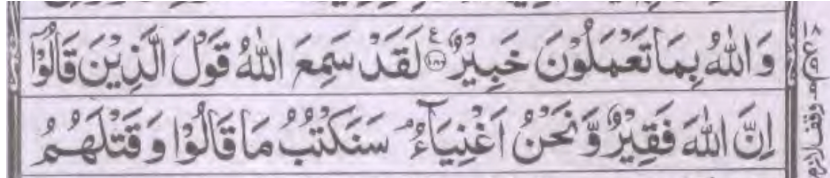 وَاللّٰهُ بِمَا تَعْمَلُوْنَ خَبِيْرٌ ۧ﴿۱۸۰﴾ لَقَدْ سَمِعَ اللّٰهُ قَوْلَ الَّذِيْنَ قَالُوْۤا
اِنَّ اللّٰهَ فَقِيْرٌ وَّنَحْنُ اَغْنِيَآءُ ۘ سَنَكْتُبُ مَا قَالُوْا وَقَتْلَهُمُ
وقف لازم